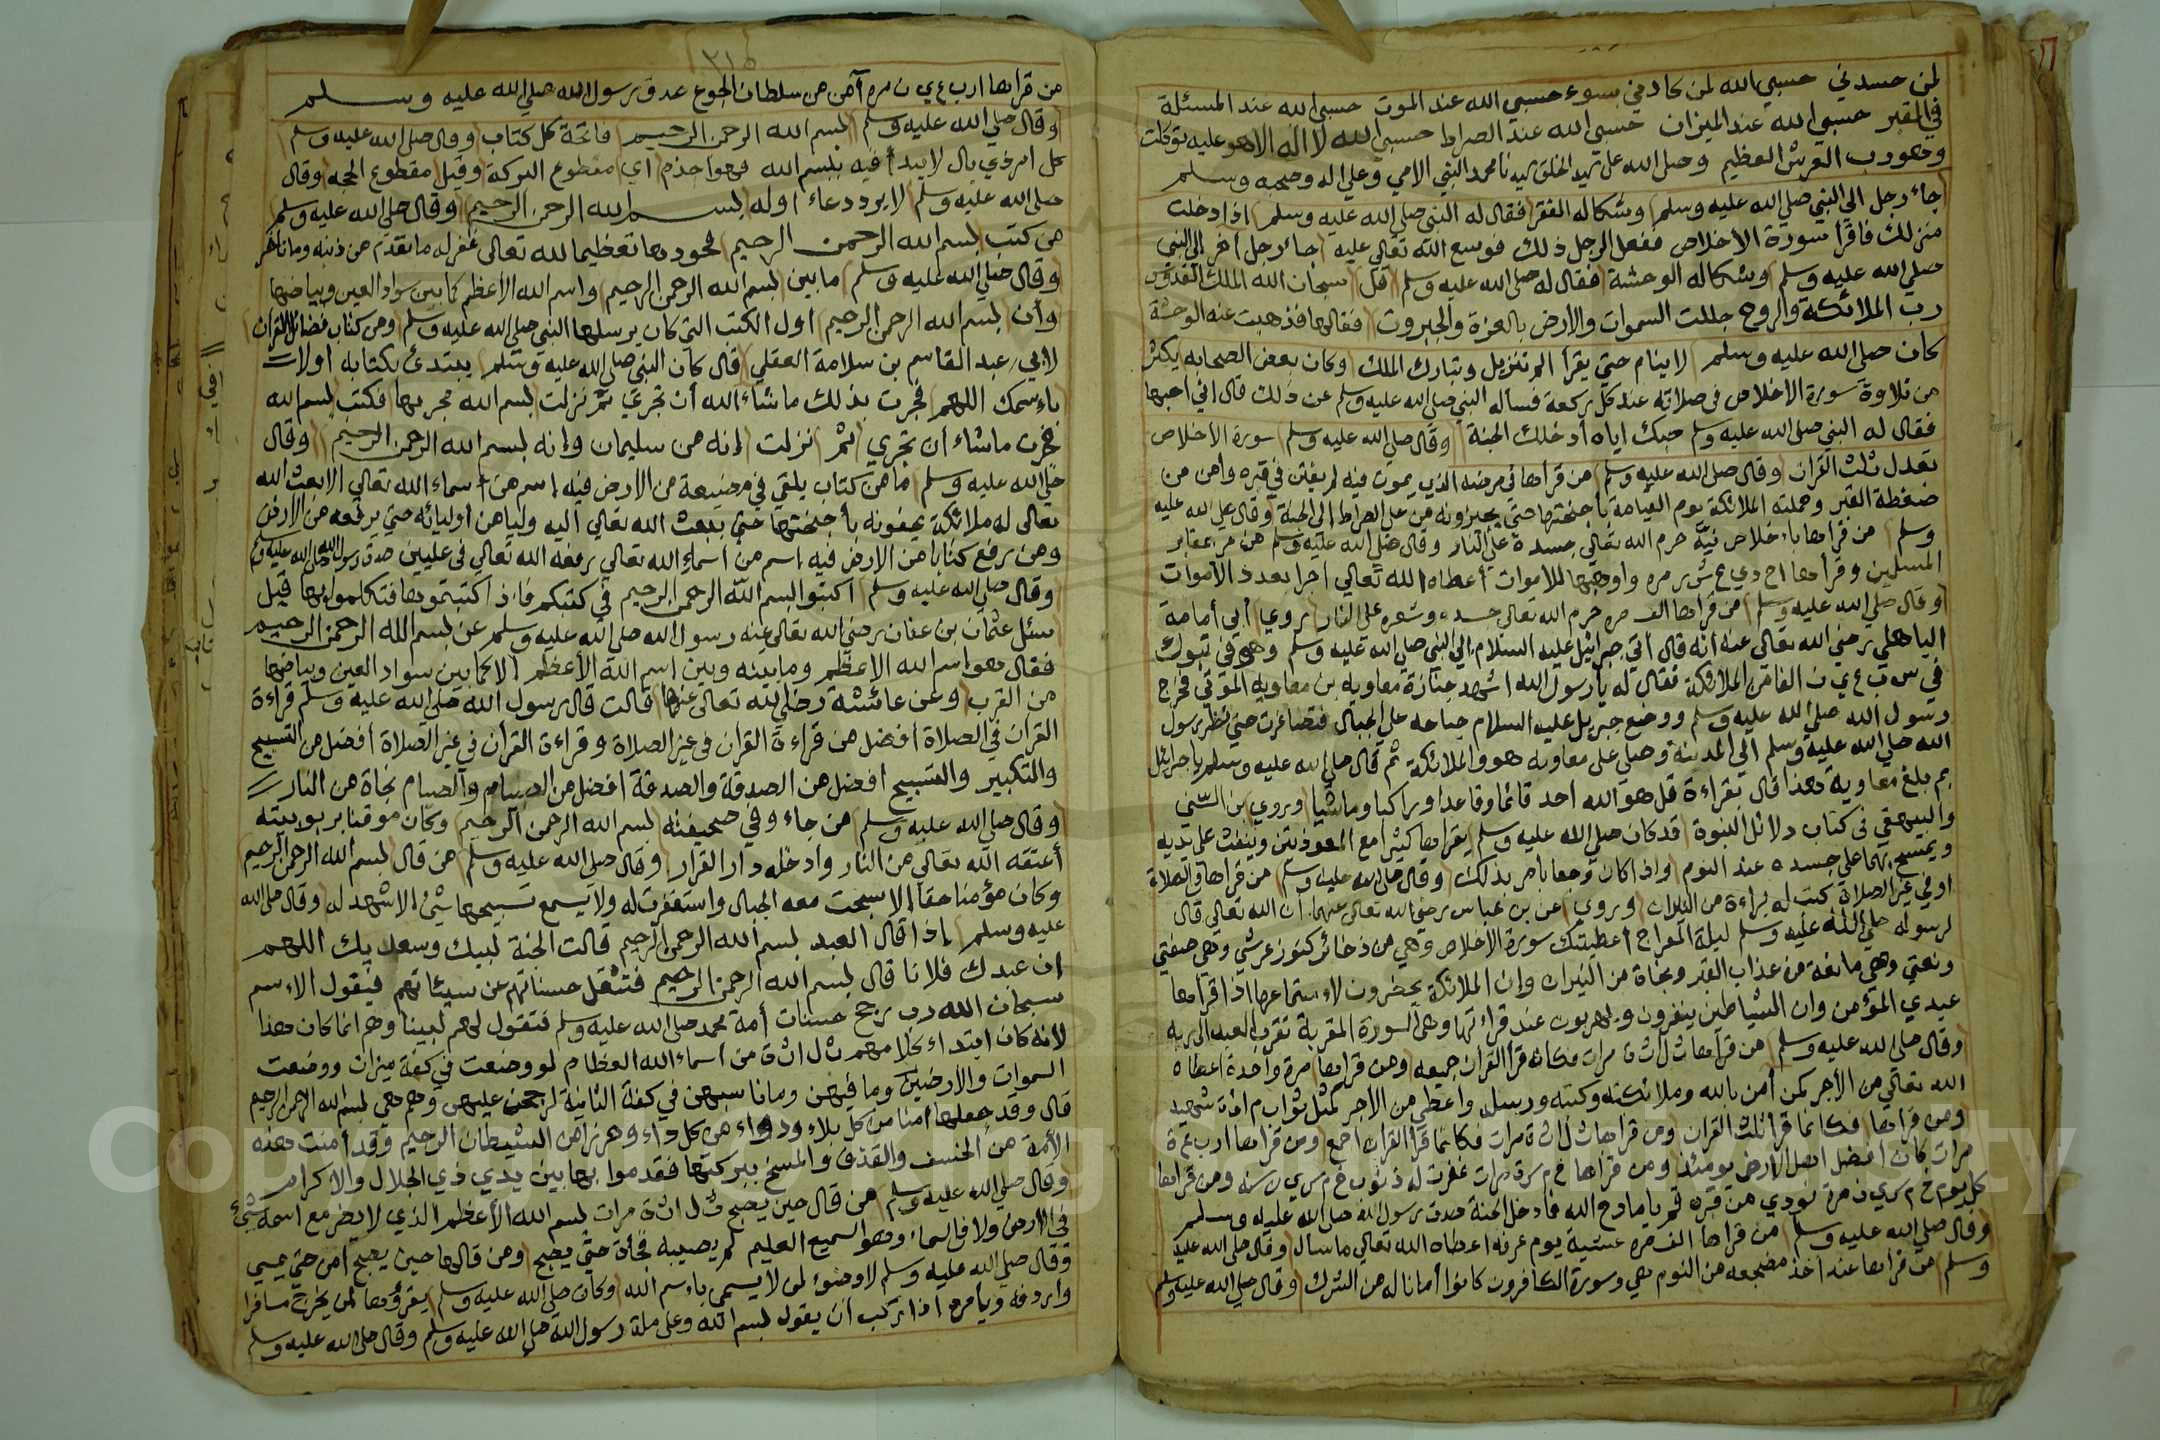 لمن حسدني حسبي الله لمن كادني بسوء حسبي الله عند الموت حسبي الله عند المسئلة
في القبر حسبي الله عند الميزان حسبي الله عند الصراط حسبي الله لا اله الا هو عليه توكلت
وهو رب العرش العظيم وصلى الله على سيد الخلق سيدنا محمد النبي الامي وعلى اله وصحبه وسلم
جاء رجل الى النبي صلى الله عليه وسلم وشكا له الفقر فقال له النبي صلى الله عليه وسلم اذا دخلت
منزلك فاقرأ سورة الاخلاص ففعل الرجل ذلك فوسع الله تعالى عليه جاء رجل آخر الى النبي
صلى الله عليه وسلم وشكا له الوحشة فقال له صلى الله عليه وسلم قل سبحان الله الملك القدوس
رب الملائكة والروح جللت السموات والارض بالعزة والجبروت فقالها فذهبت عنه الوحشة
كان صلى الله عليه وسلم لا ينام حتى يقرأ الم تنزيل وتبارك الملك وكان بعض الصحابه يكثر
من تلاوة سورة الاخلاص في صلاته عند كل ركعة فسأله النبي صلى الله عليه وسلم عن ذلك قال اني احبها
فقال له النبي صلى الله عليه وسلم حبك اياه أدخلك الجنة وقال صلى الله عليه وسلم سورة الاخلاص
تعدل ثلث القران وقال صلى الله عليه وسلم من قرأها في مرضه الذي يموت فيه لم يفتن في قبره وأمن من
ضغطة القبر وحملته الملائكة يوم القيامة بأجنحتها حتى يجيزونه من على الصراط الى الجنة وقال صلى الله عليه
وسلم من قراها باخلاص نيّة حرم الله تعالى جسده على النار وقال صلى الله عليه وسلم من مر بمقابر
المسلمين وقرأها اح دي ع ش ر مره واوهبها للاموات أعطاه الله تعالى اجرا بعدد الأموات
وقال صلى الله عليه وسلم من قراها الف مره حرم الله تعالى جسده وشعره على النار روي أبي أمامة
الباهلي رضي الله تعالى عنه أنه قال أتى جبرائيل عليه السلام الى النبي صلى الله عليه وسلم وهو في تبوك
في س ب ع ي ن الفا من الملائكة فقال له يا رسول الله اشهد جنازة معاويه بن معاويه المؤتي فخرج
رسول الله صلى الله عليه وسلم ووضع جبريل عليه السلام جناحه على الجبال فتضاغرت حتى نظر رسول
الله صلى الله عليه وسلم الى المدينة وصلى على معاويه هو والملائكة ثم قال صلى الله عليه وسلم يا جبرائيل
بم بلغ معاوية هذا قال بقراءة قل هو الله احد قائما وقاعدا وراكبا وماشيا وروي بن السني
والبيهقي في كتاب دلائل النبوة قد كان صلى الله عليه وسلم يقراها كثيرا مع المعوذتين وينفث على يديه
ويمسح بهما على جسده عند النوم واذا كان وجعا يامر بذلك وقال صلى الله عليه وسلم من قراها في الصلاة
او في غير الصلاة كتب له براءة من النيران وروي عن بن عباس رضي الله تعالى عنهما ان الله تعالى قال
لرسوله صلى الله عليه وسلم ليلة المعراج أعطيتك سورة الأخلاص وهي من ذخائر كنوز عرشي وهي صفتي
ونعتي وهي مانعة من عذاب القبر ونجاة من النيران وان الملائكة يحضرون لاستماعها اذا قرأها
عبدي المؤمن وان الشياطين ينفرون ويهربون عند قراءتها وهي السورة المقربة تقرب العبد الى ربه
وقال صلى الله عليه وسلم من قرأها ث ل ا ث ة مرات فكانه قرأ القران جميعه ومن قراها مرة واحدة أعطاه
الله تعالى من الأجر كمن أمن بالله وملائكته وكتبه ورسله واعطي من الأجر كمثل ثواب م ا ئ ة شهيد
ومن قراها فكانما قرأ ثلث القران ومن قراها ث ل ا ث ة مرات فكانما قرأ القران اجمع ومن قراها ا ر ب ع ة
مرات كان افضل اهل الارض يومئذ ومن قراها
كل يوم خ م س ي ن مرة نودي من قبره قم يا مادح الله فادخل الجنة صدق رسول الله صلى الله عليه وسلم
وقال صلى الله عليه وسلم من قراها الف مره عشية يوم عرفه اعطاه الله تعالى ما سأل وقال صلى الله عليه
وسلم من قراها عند اخذ مضجعه من النوم هي وسورة الكافرون كانوا أمانا له من الشرك وقال صلى الله عليه وسلم
من قراها ا ر ب ع ي ن مره آمن من سلطان الجوع صدق رسول الله صلى الله عليه وسلم
وقال صلى الله عليه وسلم بسم الله الرحمن الرحيم فاتحة كل كتاب وقال صلى الله عليه وسلم
كل امر ذي بال لا يبدأ فيه ببسم الله فهو اجذم اي مقطوع البركة وقيل مقطوع الحجه وقال
صلى الله عليه وسلم لا يرد دعاء اوله بسم الله الرحمن الرحيم وقال صلى الله عليه وسلم
من كتب بسم الله الرحمن الرحيم فجودها تعظيما لله تعالى غفر له ما تقدم من ذنبه وما تأخر
وقال صلى الله عليه وسلم ما بين بسم الله الرحمن الرحيم واسم الله الأعظم كما بين سواد العين وبياضها
وأن بسم الله الرحمن الرحيم اول الكتب التي كان يرسلها النبي صلى الله عليه وسلم ومن كتاب فضائل القران
لابي عبد القاسم بن سلامة العقلي قال كان النبي صلى الله عليه وسلم يبتدئ بكتابه اولا
باسمك اللهم فجرت بذلك ما شاء الله أن تجري ثم نزلت بسم الله مجريها فكتب بسم الله
فجرت ماشاء أن تجري ثم نزلت إنه من سليمان وإنه بسم الله الرحمن الرحيم وقال
صلى الله عليه وسلم ما من كتاب يلقي في مضيعة من الارض فيه اسم من أسماء الله تعالى الا بعث الله
تعالى له ملائكة يحفونه بأجنحتها حتى يبعث الله تعالى اليه وليا من أوليائه حتى يرفعه من الارض
ومن رفع كتابا من الارض فيه اسم من أسماء الله تعالى رفعه الله تعالى في عليين صدق رسول الله صلى الله عليه وسلم
وقال صلى الله عليه وسلم اكتبوا بسم الله الرحمن الرحيم في كتبكم فاذ اكتبتموها فتكلموا بها قيل
سئل عثمان بن عفان رضي الله تعالى عنه رسول الله صلى الله عليه وسلم عن بسم الله الرحمن الرحيم
فقال هو اسم الله الاعظم وما بينه وبين اسم الله الأعظم الا كما بين سواد العين وبياضها
من القرب وعن عائشة رضى الله تعالى عنها قالت قال رسول الله صلى الله عليه وسلم قراءة
القران في الصلاة افضل من قراءة القران في غير الصلاة وقراءة القرأن في غير الصلاة أفضل من التسبيح
والتكبير والتسبيح افضل من الصدقة والصدقة افضل من الصيام والصيام نجاة من النار
وقال صلى الله عليه وسلم من جاء وفي صحيفته بسم الله الرحمن الرحيم وكان موقنا بربوبيته
أعتقه الله تعالى من النار وادخله دار القرار وقال صلى الله عليه وسلم من قال بسم الله الرحمن الرحيم
وكان مؤمنا حقا الا سبحت معه الجبال واستغفرت له ولا يسمع تسبيحها شئ الا شهد له وقال صلى الله
عليه وسلم إذا قال العبد بسم الله الرحمن الرحيم قالت الجنة لبيك وسعديك اللهم
ان عبدك فلانا قال بسم الله الرحمن الرحيم فتثقل حسناتهم عن سيئاتهم فيقول الاسم
سبحان الله رب رجح حسنات أمة محمد صلى الله عليه وسلم فتقول لهم نبينا وهم انما كان هذا
لأنه كان ابتداء كلامهم ث ل ا ث ة من أسماء الله العظام لو وضعت في كفة ميزان ووضعت
السموات والأرضين وما فيهن وما بينهن في كفة الثانية لرجحن عليهن وهم هي بسم الله الرحمن الرحيم
قال وقد جعلها أمنا من كل بلاء ودواء من كل داء وحرزا من الشيطان الرحيم وقد أمنت هذه
الأمة من الخسف والقذف والمسخ ببركتها فقدموا بها بين يدي ذي الجلال والاكرام
وقال صلى الله عليه وسلم من قال حين يصبح ث ل ا ث ة مرات بسم الله الأعظم الذي لا يضر مع اسمه شئ
في الارض ولا في السماء وهو السميع العليم لم يصيبه فجأة حتى يصبح ومن قالها حين يصبح أمن حتى يمسي
وقال صلى الله عليه وسلم لا وضوء لمن لا يسمي باسم الله وكان صلى الله عليه وسلم يقرؤها لمن يخرج مسافرا
واردفه ويأمره اذا ركب أن يقول بسم الله وعلى ملة رسول الله صلى الله عليه وسلم وقال صلى الله عليه وسلم